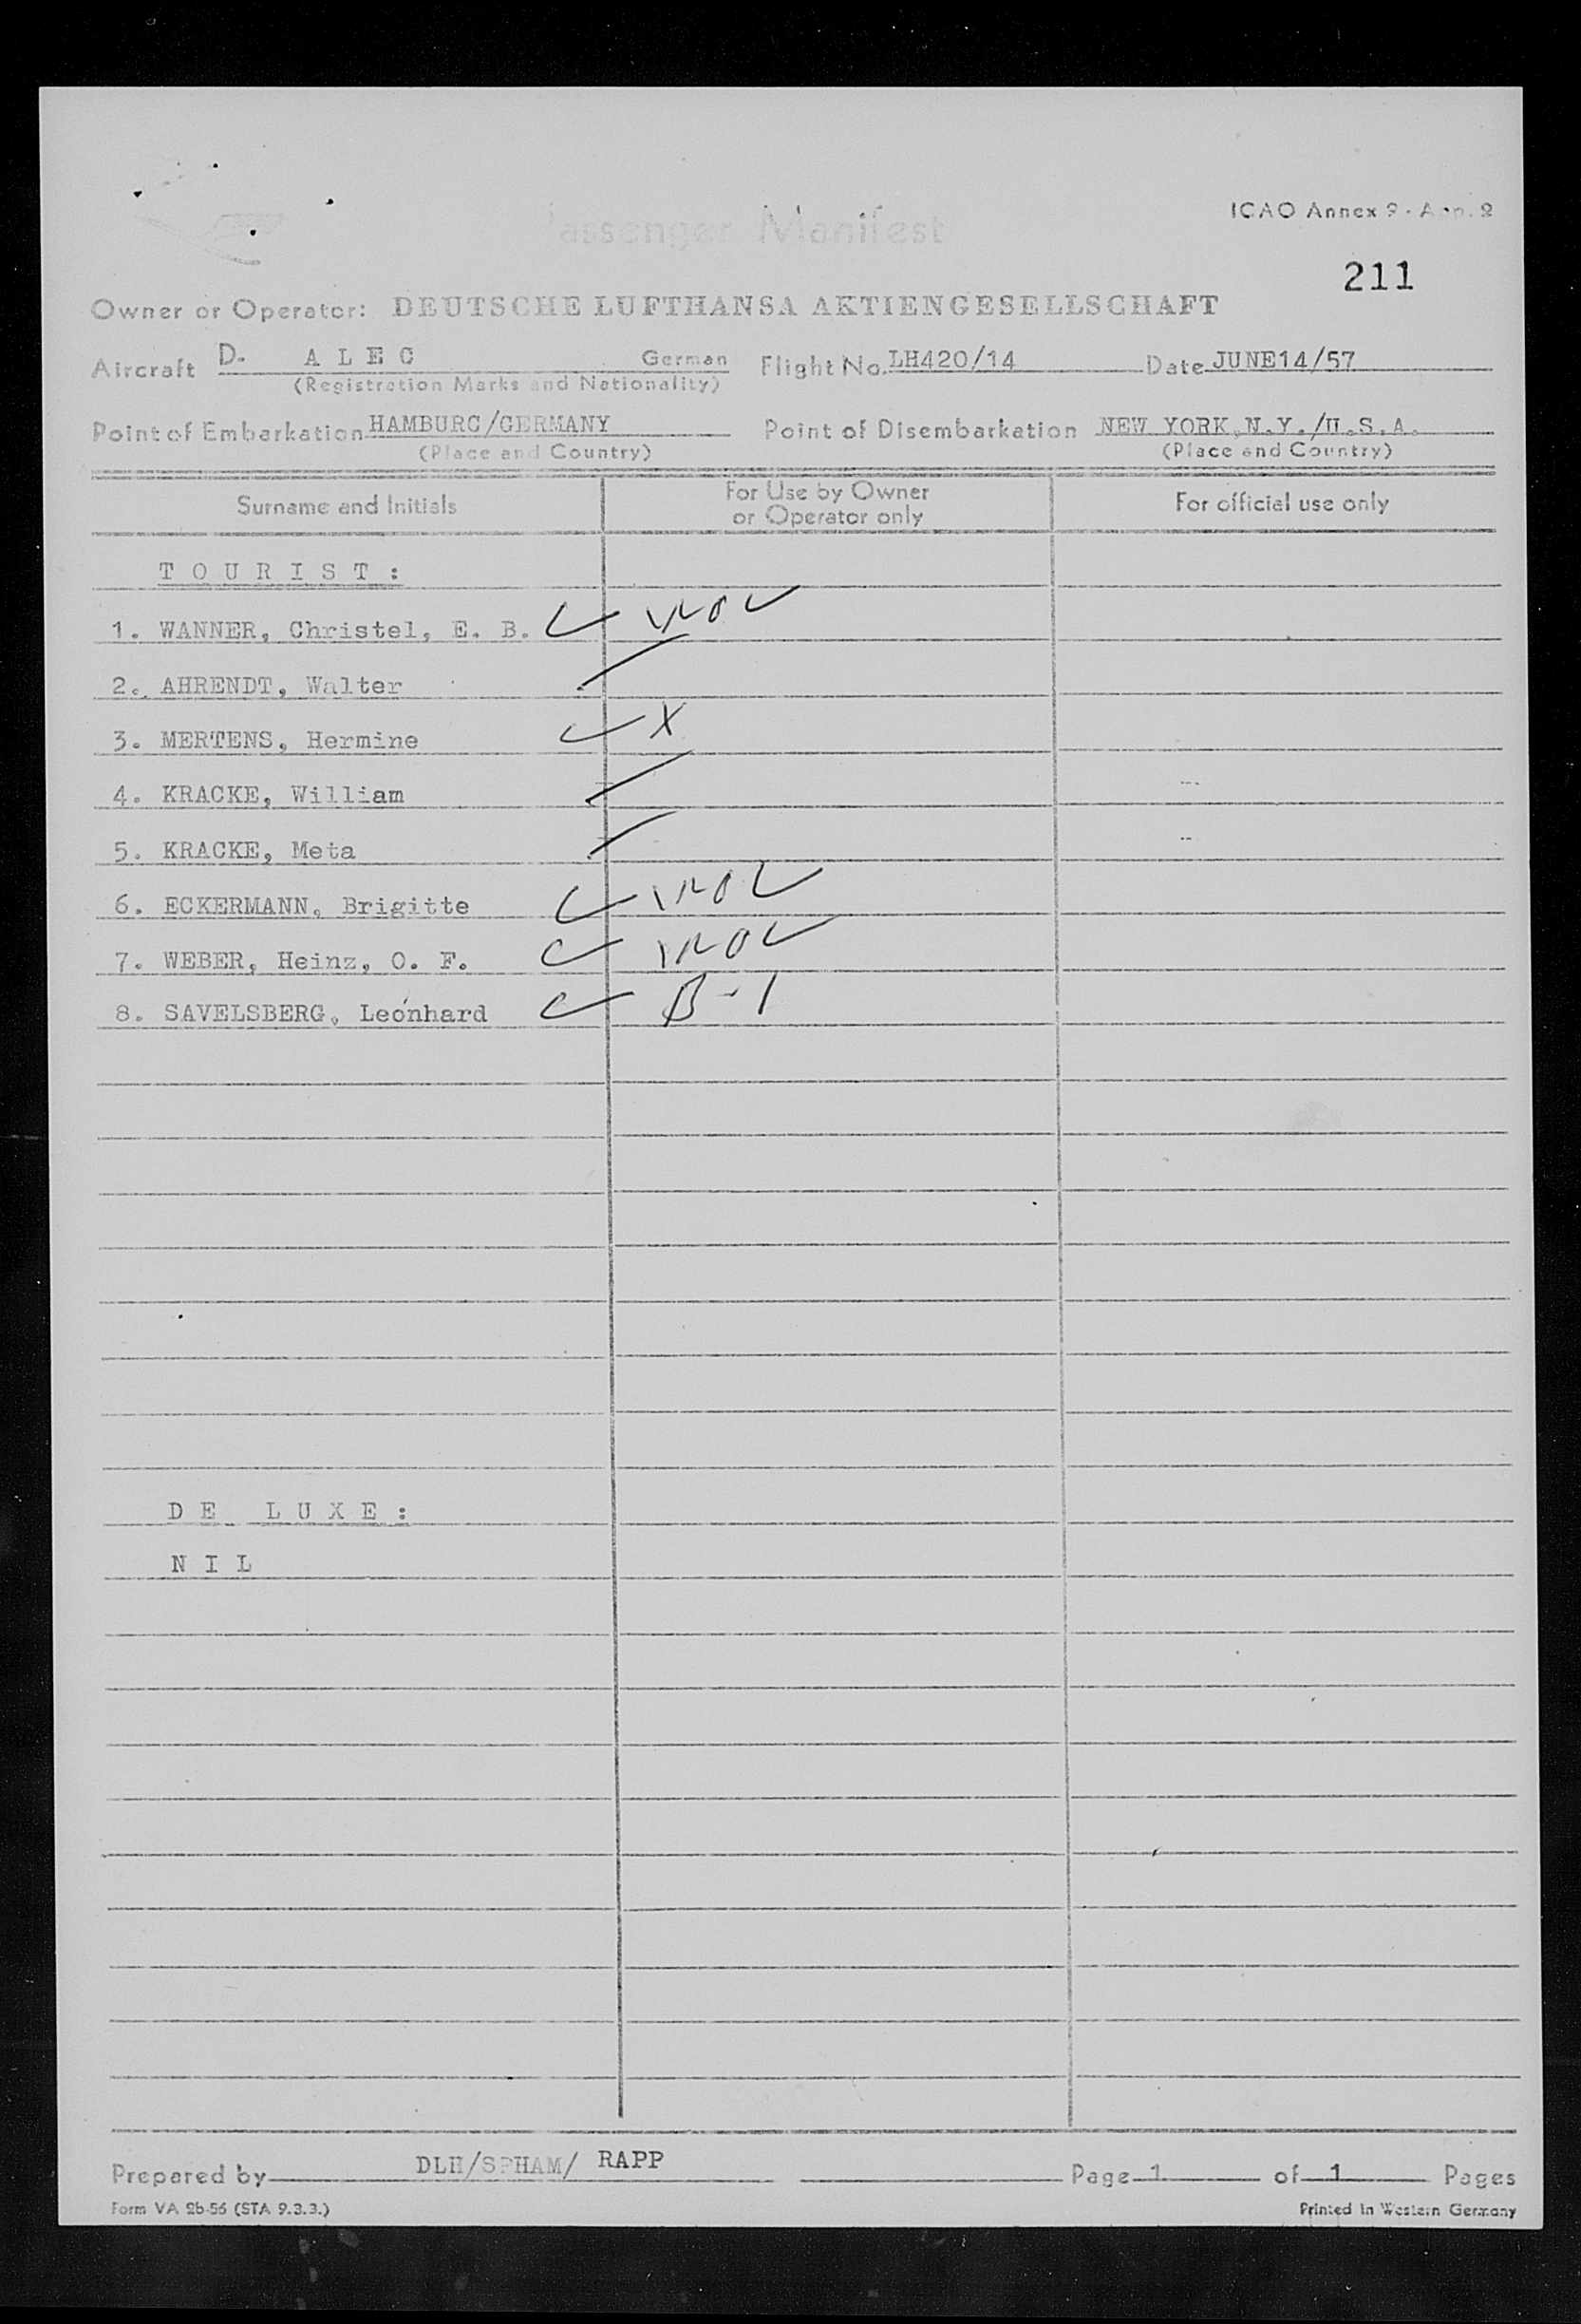 Passenger Manifest
ICAO Annex 9 - App. 2
211
Owner or Operator: DEUTSCHE LUFTHANSA AKTIENGESELLSCHAFT
Aircraft D. A L E C German Flight No. LH420/14 Date JUNE14/57
(Registration Marks and Nationality)
Point of Embarkation HAMBURG/GERMANY Point of Disembarkation NEW YORK, N.Y./U.S.A.
(Place and Country) (Place and Country)
Surname and Initials For Use by Owner or Operator only For official use only
T O U R I S T :
1. WANNER, Christel, E. B.
2. AHRENDT, Walter
3. MERTENS, Hermine X
4. KRACKE, William
5. KRACKE, Meta
6. ECKERMANN, Brigitte
7. WEBER, Heinz, O. F.
8. SAVELSBERG, Leonhard B-1
D E L U X E :
N I L
Prepared by DLH/SPHAM/ RAPP Page 1 of 1 Pages
Form VA 2b-56 (STA 9.3.3.) Printed in Western Germany